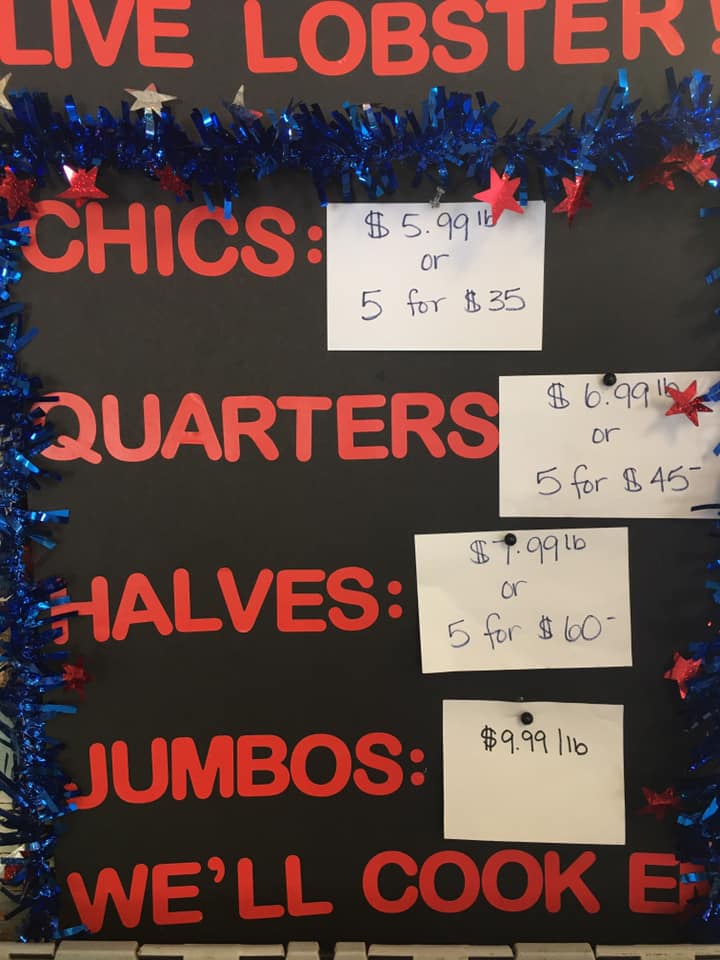 LIVE LOBSTER!
CHICS:
$5.99 lb
or
5 for $35
QUARTERS
$6.99 lb
or
5 for $45-
HALVES:
$7.99 lb
or
5 for $60-
JUMBOS:
$9.99/lb
WE'LL COOK E